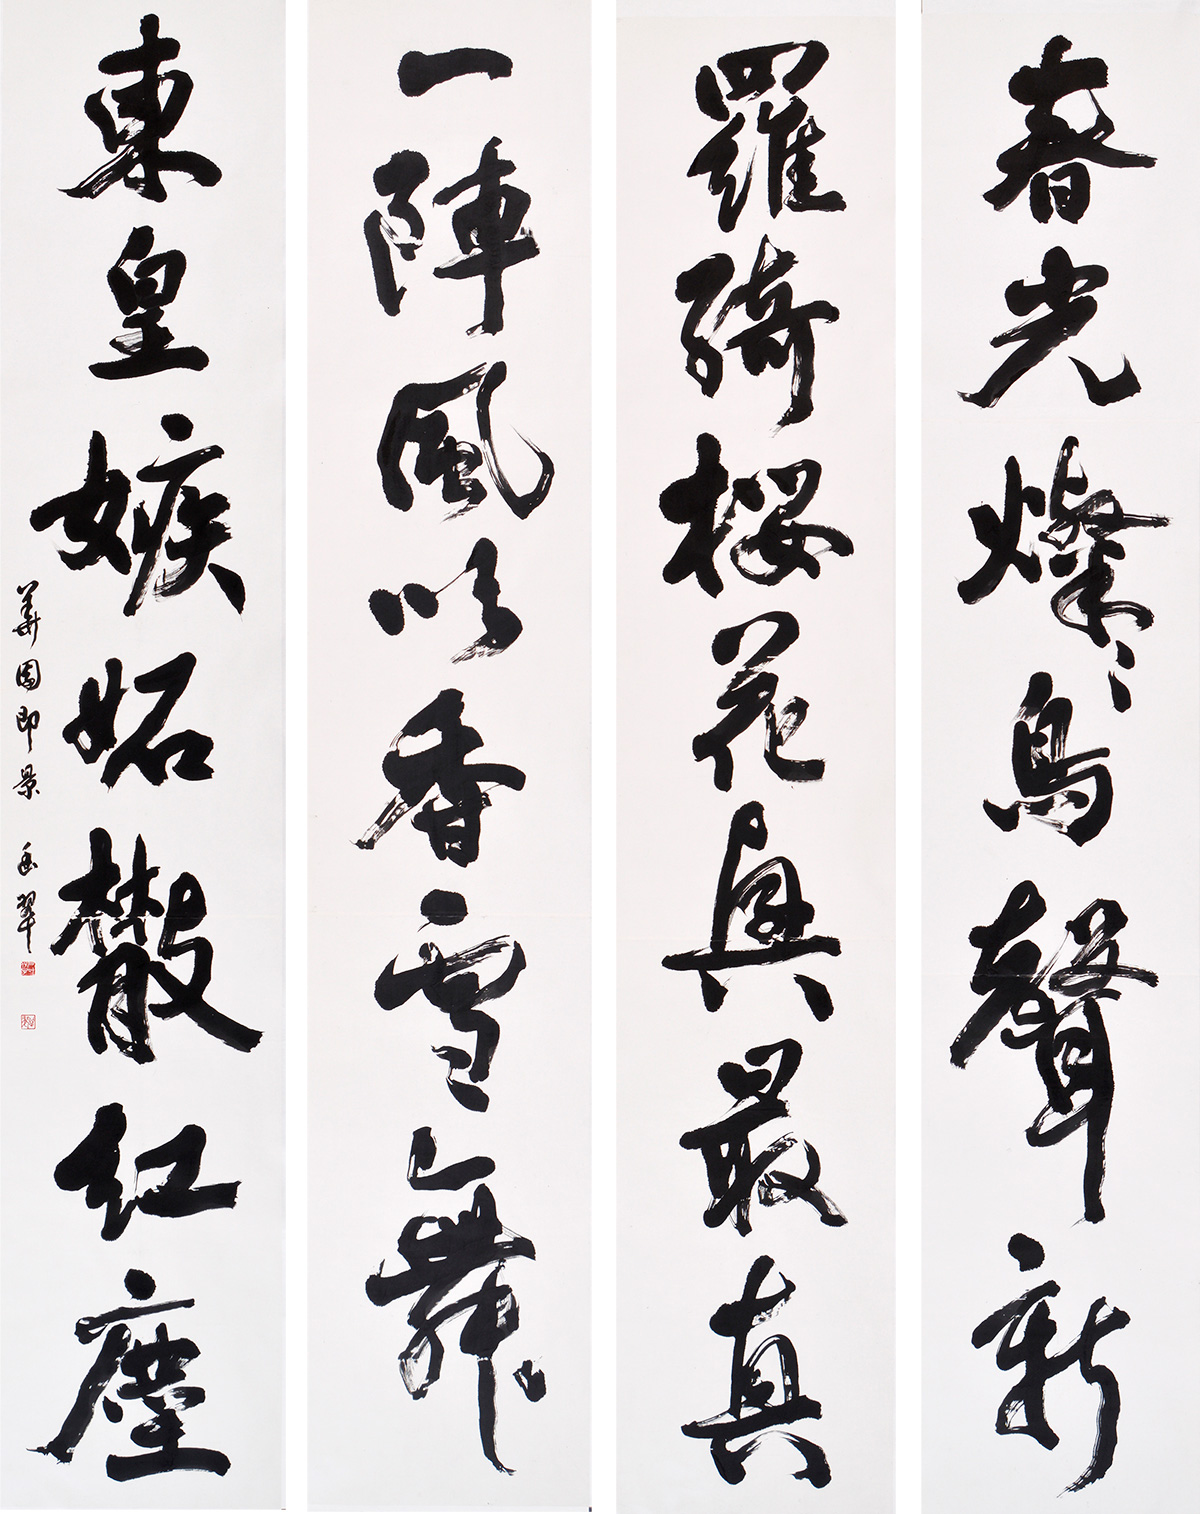 春光燦〻鳥聲新
羅綺櫻花興最真
一陣風以香雪舞
東皇嫉妬散紅塵
華園即景 翠